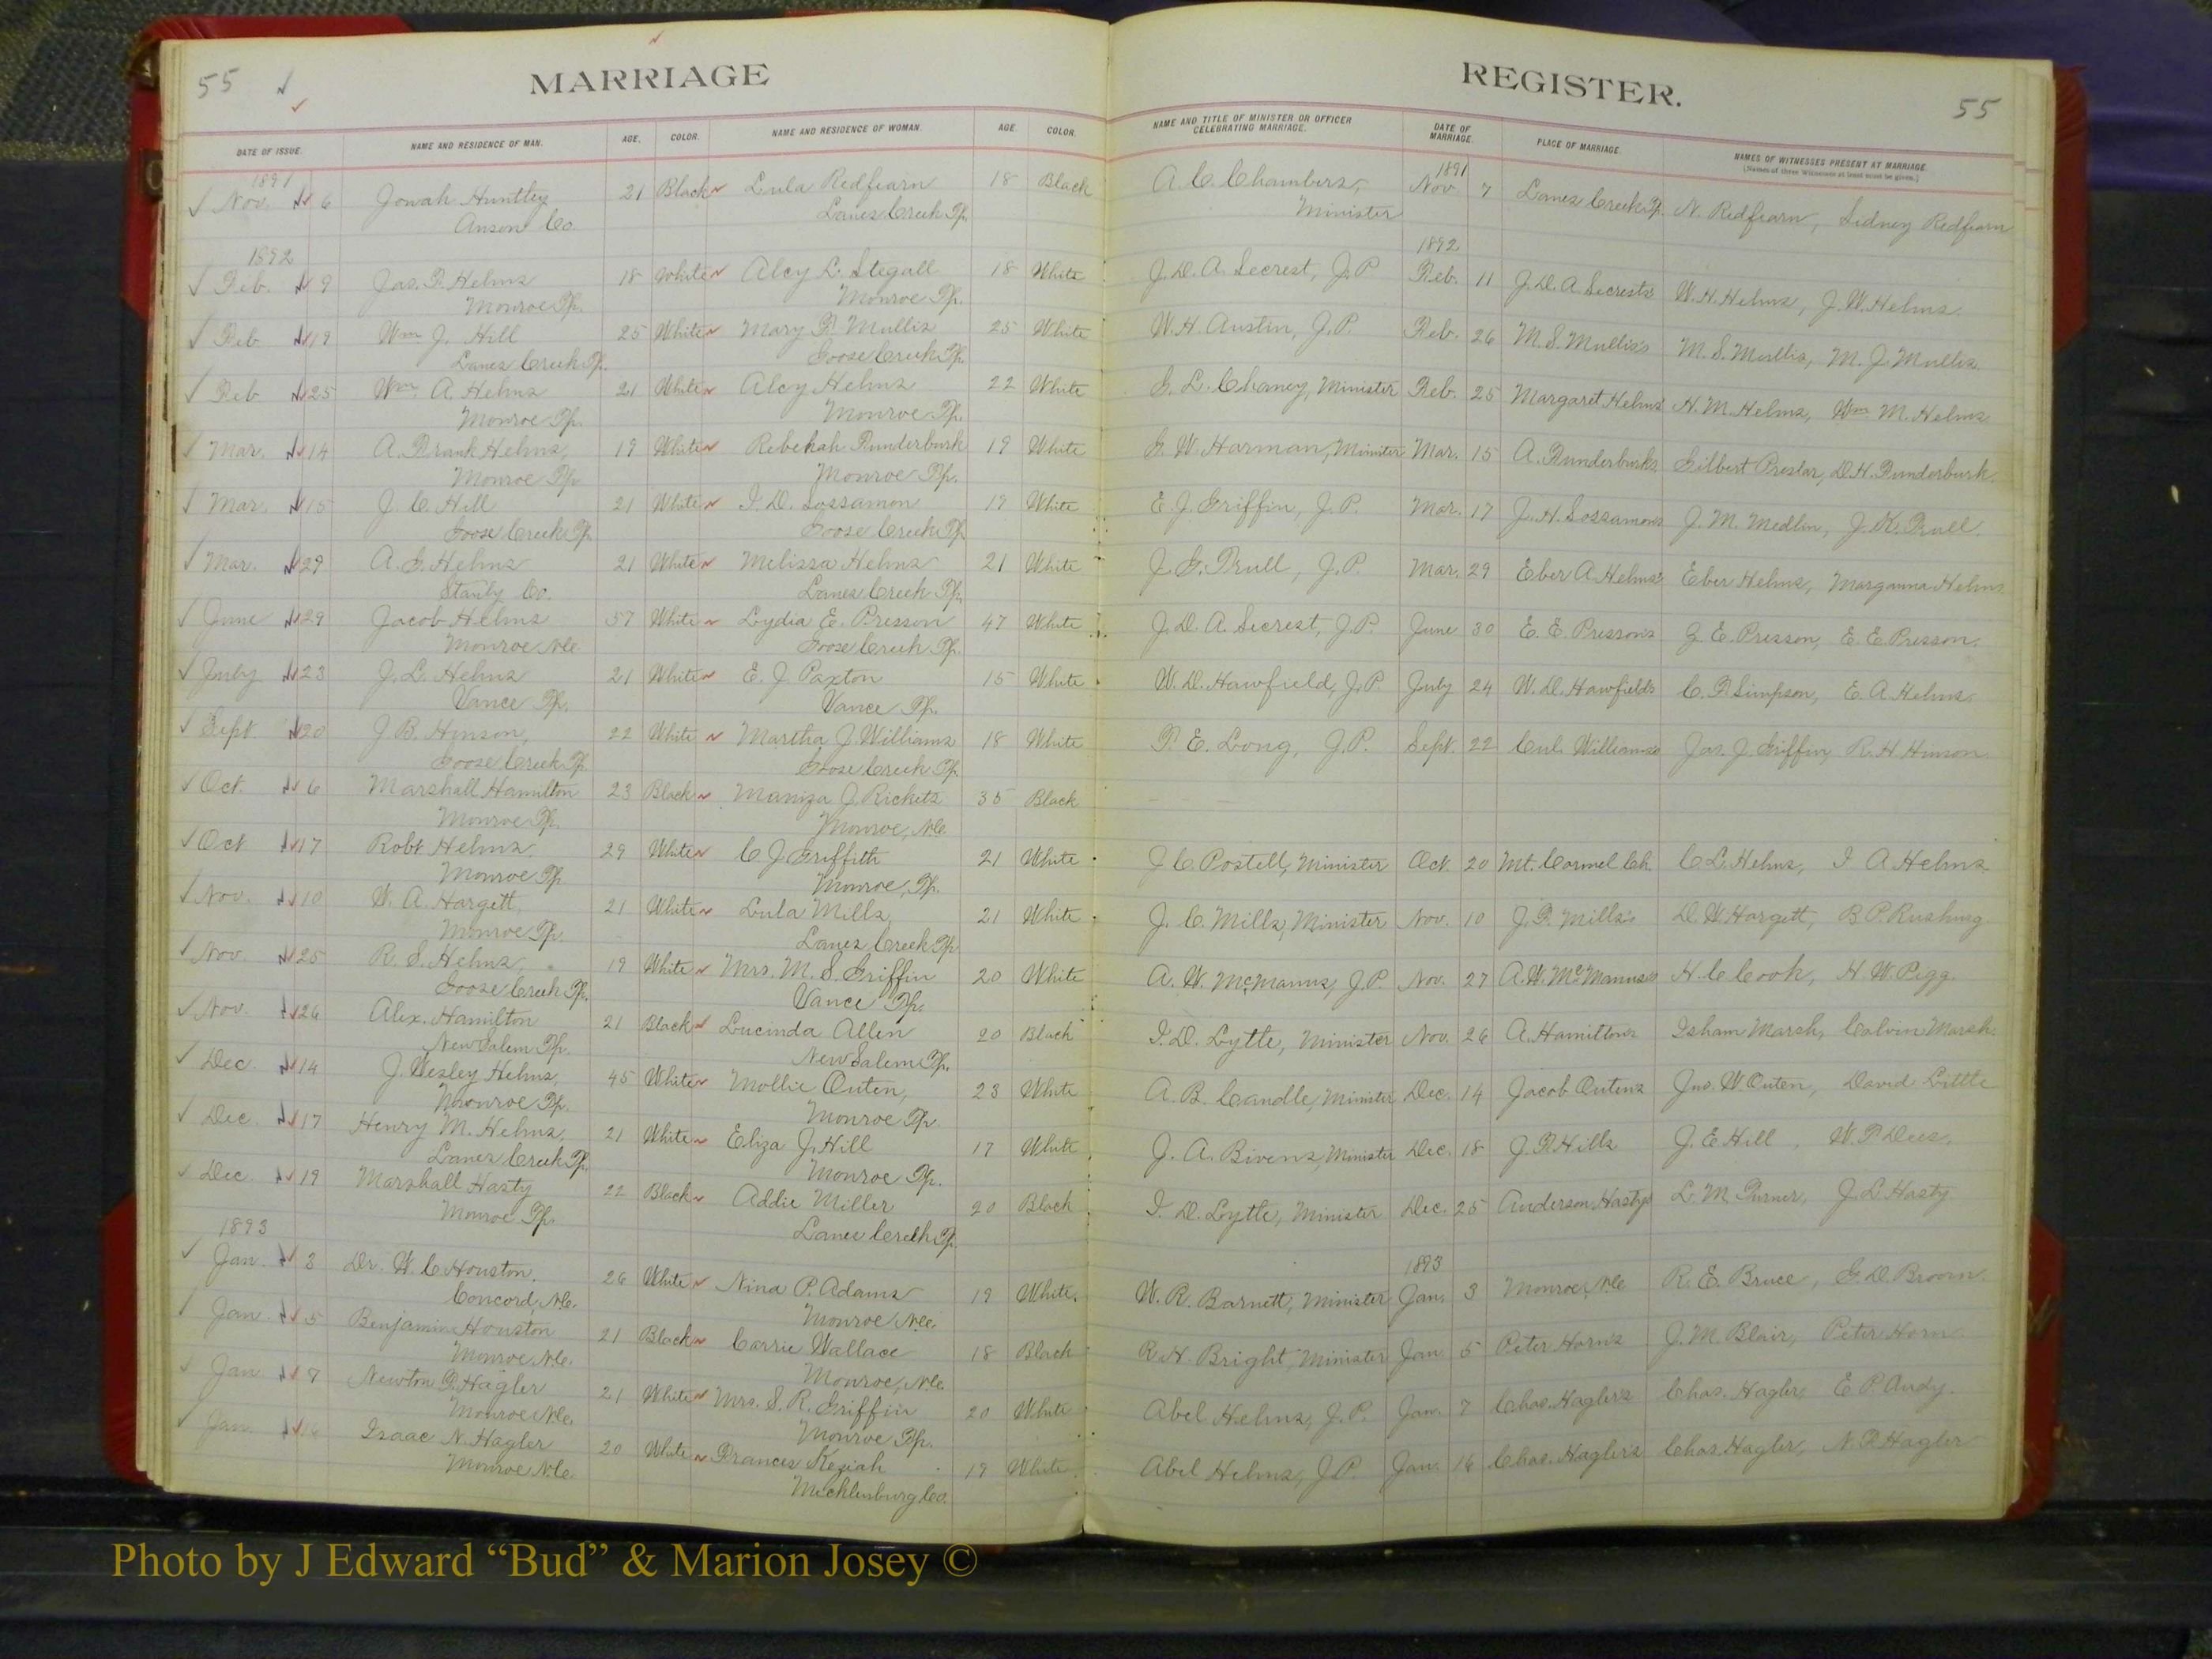 55
MARRIAGE
REGISTER.
55
DATE OF ISSUE. NAME AND RESIDENCE OF MAN. AGE. COLOR. NAME AND RESIDENCE OF WOMAN. AGE. COLOR. NAME AND TITLE OF MINISTER OR OFFICER CELEBRATING MARRIAGE. DATE OF MARRIAGE. PLACE OF MARRIAGE. NAMES OF WITNESSES PRESENT AT MARRIAGE.
[Names of three Witnesses at least must be given.]
1891 1891
Nov. 6 Jonah Huntley 21 Black Lula Redfearn 18 Black A. C. Chambers, Nov 7 Lanes Creek Tp. N. Redfearn, Sidney Redfearn
Anson Co. Lanes Creek Tp. Minister
1892 1892
Feb. 9 Jas. F. Helms 18 White Alcy L. Stegall 18 White J. D. A. Secrest, J.P. Feb. 11 J. D. A. Secrest's W. H. Helms, J. W. Helms
Monroe Tp. Monroe Tp.
Feb 19 Wm J. Hill 25 White Mary F. Mullis 25 White W. H. Austin, J.P. Feb. 26 M. S. Mullis's M. S. Mullis, M. J. Mullis
Lanes Creek Tp. Goose Creek Tp.
Feb 25 Wm. A. Helms 21 White Alcy Helms 22 White G. L. Chaney, Minister Feb. 25 Margaret Helms' H. M. Helms, Wm M. Helms
Monroe Tp. Monroe Tp.
Mar. 14 A. Frank Helms, 19 White Rebekah Funderburk 19 White G. W. Harman, Minister Mar. 15 A. Funderburks Gilbert Preslar, D. H. Funderburk.
Monroe Tp. Monroe Tp.
Mar. 15 J. C. Hill 21 White I. D. Sossamon 19 White E. J. Griffin, J.P. Mar. 17 J. H. Sossamons J. M. Medlin, J. K. Trull.
Goose Creek Tp. Goose Creek Tp.
Mar. 29 A. G. Helms 21 White Melissa Helms 21 White J. G. Trull, J.P. Mar. 29 Eber A. Helms's Eber Helms, Marganna Helms
Stanly Co. Lanes Creek Tp.
June 29 Jacob Helms 57 White Lydia E. Presson 47 White J. D. A. Secrest, J.P. June 30 E. E. Presson's E. Presson, E. E. Presson.
Monroe N.C. Goose Creek Tp.
July 23 J. L. Helms 21 White E. J. Paxton 15 White W. D. Hawfield, J.P. July 24 W. D. Hawfields C. F. Simpson, E. A. Helms.
Vance Tp. Vance Tp.
Sept. 20 J. B. Hinson, 22 White Martha J. Williams 18 White T. E. Long, J.P. Sept. 22 Williams's Jas. J. Griffin, R. H. Hinson
Goose Creek Tp. Goose Creek Tp.
Oct. 6 Marshall Hamilton 23 Black J. Ricketts 35 Black
Monroe Tp. Monroe, N.C.
Oct 17 Robt Helms 29 White C. J. Griffith 21 White J. C. Postell, Minister Oct. 20 Mt. Carmel Ch. C. L. Helms, I A Helms
Monroe Tp. Monroe, Tp.
Nov. 10 W. A. Hargett, 21 White Lula Mills 21 White J. C. Mills, Minister Nov. 10 J. F. Mills's D. W. Hargett, B. P. Rushing
Monroe Tp. Lanes Creek Tp.
Nov. 25 R. S. Helms, 19 White Mrs. M. S. Griffin 20 White A. W. McManus, J.P. Nov. 27 A. W. McManus's H. C. Cook, H. W. Pigg.
Goose Creek Tp. Vance Tp.
Nov. 26 Alex. Hamilton 21 Black Lucinda Allen 20 Black I. D. Lytle, Minister Nov. 26 A. Hamilton's Isham Marsh, Calvin Marsh.
New Salem Tp. New Salem Tp.
Dec. 14 J. Wesley Helms, 45 White Mollie Outen, 23 White A. B. Caudle, Minister Dec. 14 Jacob Outens Jno. W. Outen, David Little
Monroe Tp. Monroe Tp.
Dec. 17 Henry M. Helms, 21 White Eliza J. Hill 17 White J. A. Bivens, Minister Dec. 18 J. F. Hills J. E. Hill, W. P. Dees.
Lanes Creek Tp. Monroe Tp.
Dec 19 Marshall Hasty 22 Black Addie Miller 20 Black I. D. Lytle, Minister Dec. 25 Anderson Hastys L. M. Turner, J. L. Hasty
Monroe Tp. Lanes Creek Tp.
1893 1893
Jan 3 Dr. W. C. Houston, 26 White Nina P. Adams 19 White W. R. Barnett, Minister Jan. 3 Monroe, N.C. R. E. Bruce, G. D. Broom.
Concord, N.C. Monroe N.C.
Jan 5 Benjamin Houston 21 Black Carrie Wallace 18 Black R. H. Bright, Minister Jan 5 Peter Horn's J. M. Blair, Peter Horn
Monroe N.C. Monroe, N.C.
Jan 7 Newton F. Hagler 21 White Mrs. S. R. Griffin 20 White Abel Helms, J.P. Jan. 7 Chas. Hagler's Chas. Hagler, E. P.
Monroe N.C. Monroe Tp.
Jan. 16 Isaac N. Hagler 20 White Frances Keziah 19 White Abel Helms, J.P. Jan. 16 Chas. Hagler's Chas Hagler, N. F. Hagler
Monroe N.C. Mecklenburg Co.
Photo by J Edward “Bud” & Marion Josey ©